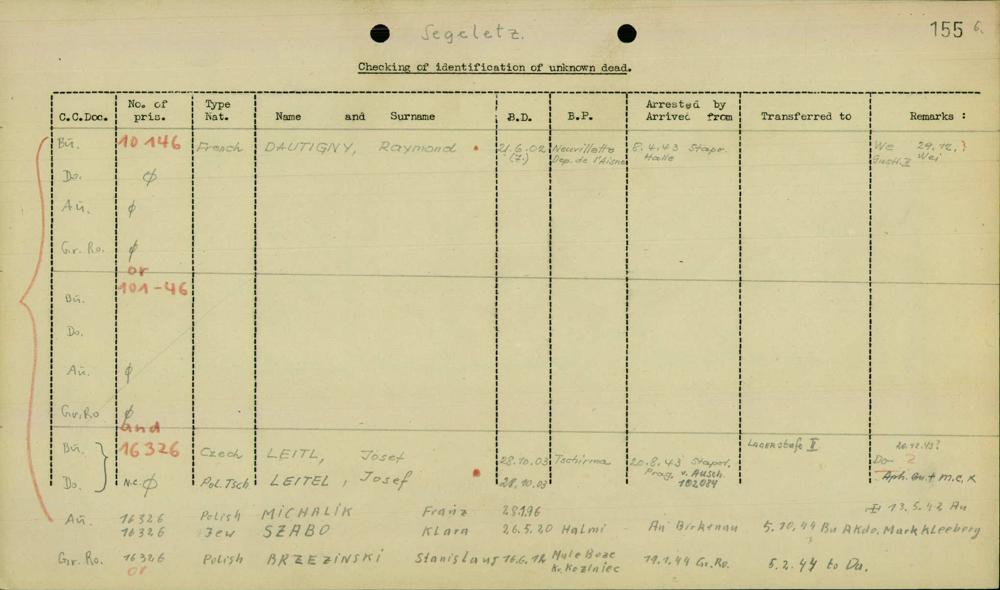 Segeletz.
155 6.
Checking of identification of unknown dead.
C.C.Doc. No. of pris. Type Nat. Name and Surname B.D. B.P. Arrested by Arrived from Transferred to Remarks :
Bu. 10 146 French DAUTIGNY, Raymond 21.6.02 (7.) Neuvillette Dep. de l'Aisne 8.4.43 Stapo. Halle We 29.12. ?
Wei
Do. ϕ
Au. ϕ
Gr. Ro. ϕ
or
101-46
Bu.
Do.
Au. ϕ
Gr. Ro ϕ
and
Bu. 16326 Czech LEITL, Josef 28.10.03 Tschirma 20.8.43 Stapol. Prag. v. Ausch. 102084 LAGERstufe II 20.12.43?
Do. N.C. ϕ Pol. Tsch LEITEL, Josef 28.10.03 Do- 2
+ m.c. x
Au. 16326 Polish MICHALIK Franz 28.1.96 13.5.42 Au
16326 Jew SZABO Klara 26.5.20 Halmi Au Birkenau 5.10.44 Bu AKdo. Markkleeberg
Gr. Ro. 16326 Polish BRZEZINSKI Stanislaus 16.6.12 Male Boze Kr. Kozlniec 19.1.44 Gr. Ro. 5.2.44 to Da.
or